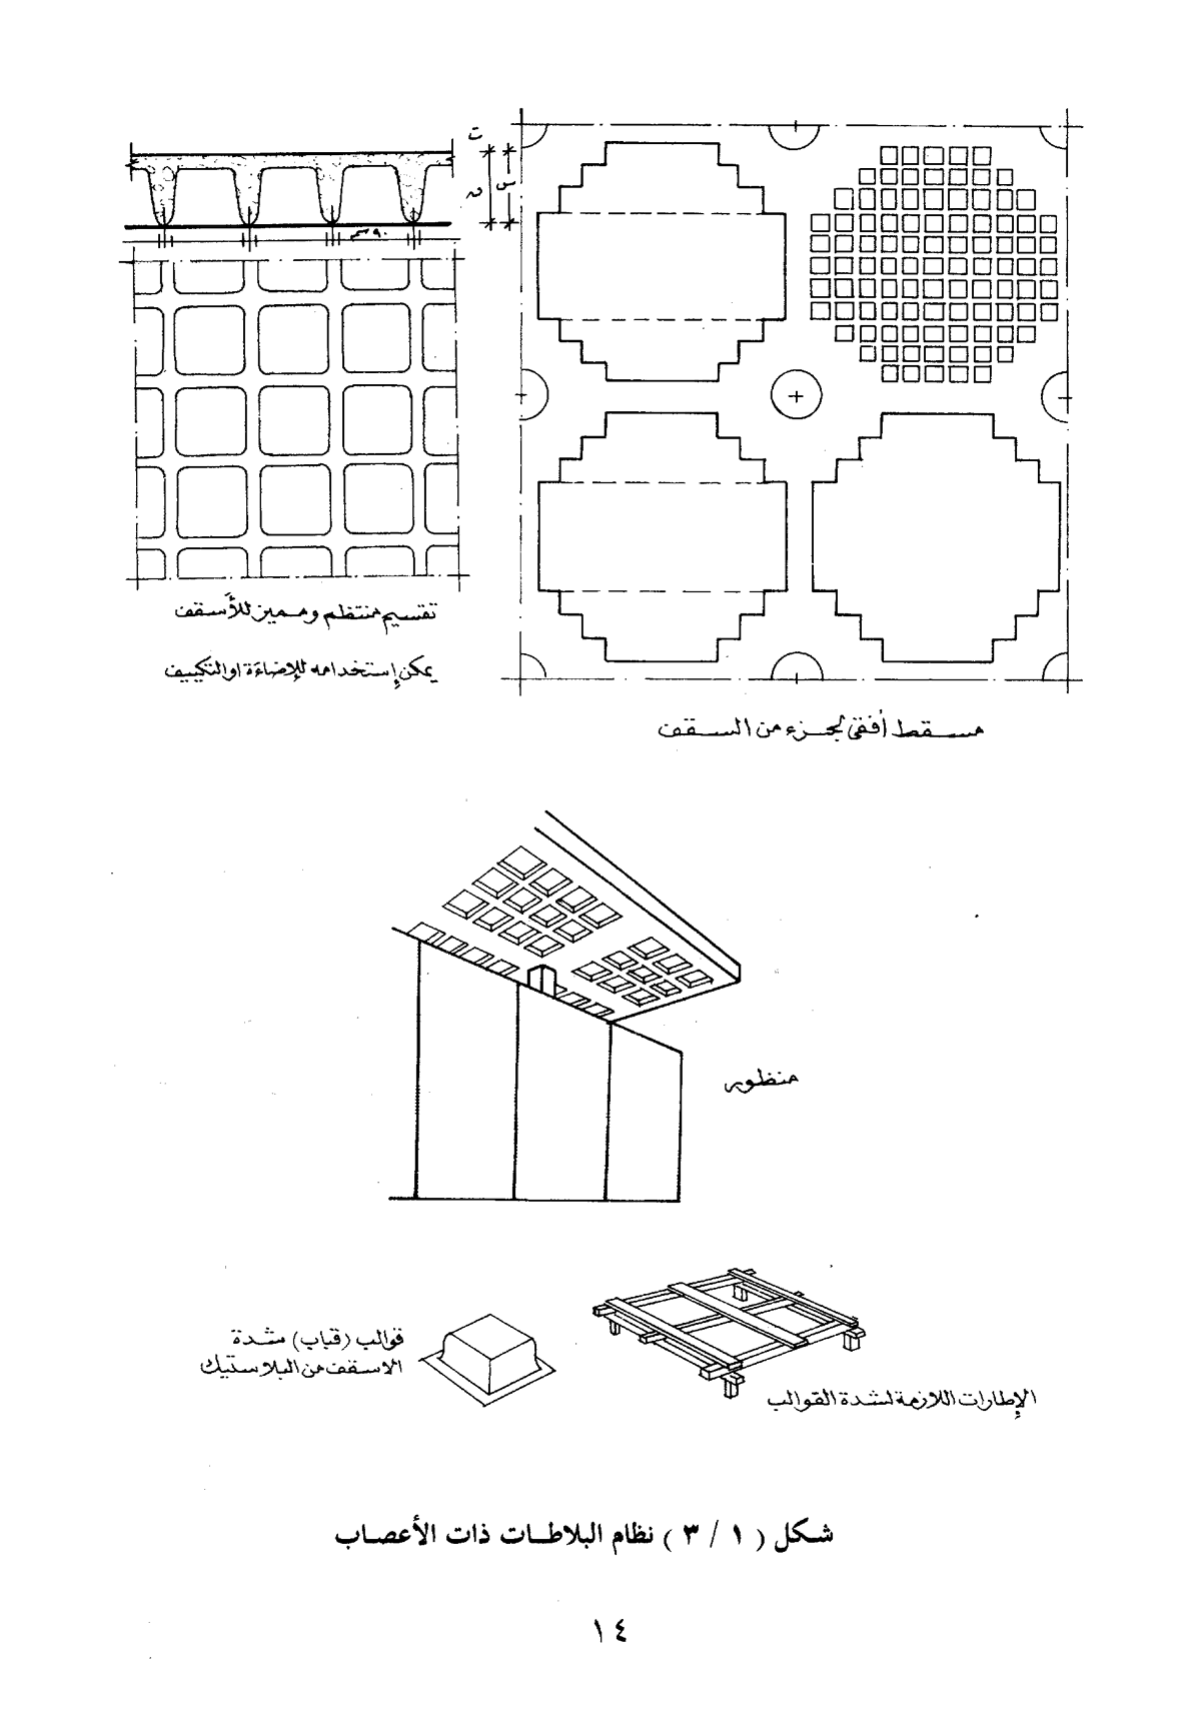 ت
س
٩٠ سم
تقسيم منتظم ومميز للأسقف
يمكن إستخدامه للإضاءة او التكييف
مسقط أفقى لجزء من السقف
منظور
قوالب (قباب) شدة
الاسقف من البلاستيك
الإطارات اللازمة لشدة القوالب
شكل ( ١ / ٣ ) نظام البلاطات ذات الأعصاب
١٤